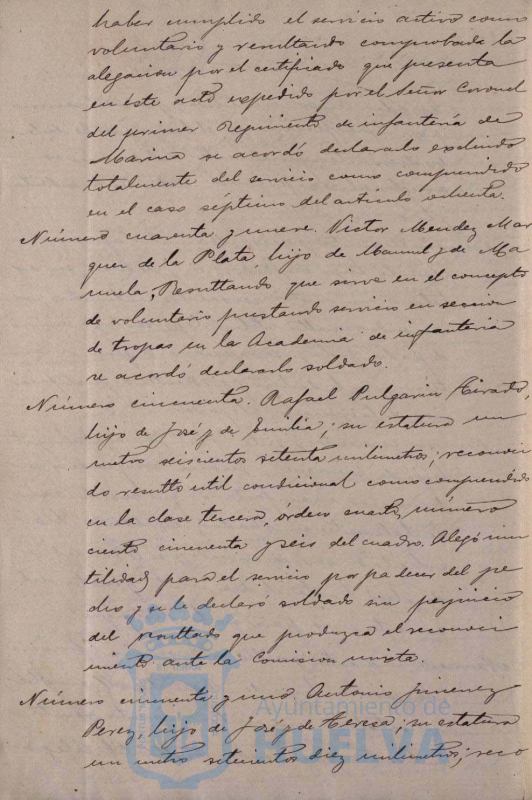 haber cumplido el servicio activo como
voluntario y resultando comprobada la
alegacion por el certificado que presenta
en éste acto expedido por el Señor Coronel
del primer Regimiento de infantería de
Marina se acordó declararlo excluido
totalmente del servicio como comprendido
en el caso séptimo del artículo ochenta.
Número cuarenta y nueve. Victor Mendez Mar
quez de la Plata, hijo de Manuel y de Ma
nuela, Resultando que sirve en el concepto
de voluntario prestando servicio en seccion
de tropas en la Academia de infanteria
se acordó declararlo soldado.
Número cincuenta. Rafael Pulgarin Tirado,
hijo de José y de Emilia; su estatura un
metro seiscientos setenta milimetros; reconoci
do resultó util condicional como comprendido
en la clase tercera, órden cuarto, número
ciento cincuenta y seis del cuadro. Alegó inu
tilidad para el servicio por padecer del pe
cho y se le declaró soldado sin perjuicio
del resultado que produzca el reconoci
miento ante la Comision mixta.
Número cincuenta y uno Antonio Jimenez
Perez, hijo de José y de Teresa; su estatura
un metro setecientos diez milimetros; reco
Ayuntamiento de
HUELVA